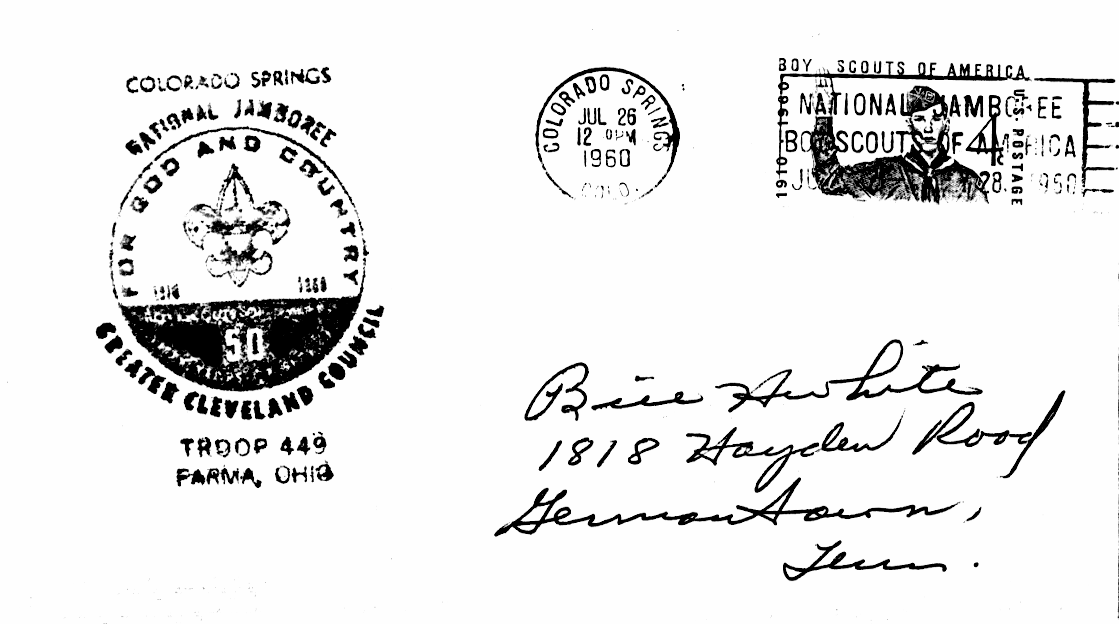 COLORADO SPRINGS
NATIONAL JAMBOREE
FOR GOD AND COUNTRY
1910 1960
50
GREATER CLEVELAND COUNCIL
TROOP 449
PARMA, OHIO
COLORADO SPRINGS
JUL 26
12 PM
1960
COLO.
BOY SCOUTS OF AMERICA
1910 1960
U.S. POSTAGE
4c
NATIONAL JAMBOREE
BOY SCOUTS OF AMERICA
28, 1960
Bill White
1818 Hayden Road
Germantown,
Tenn.